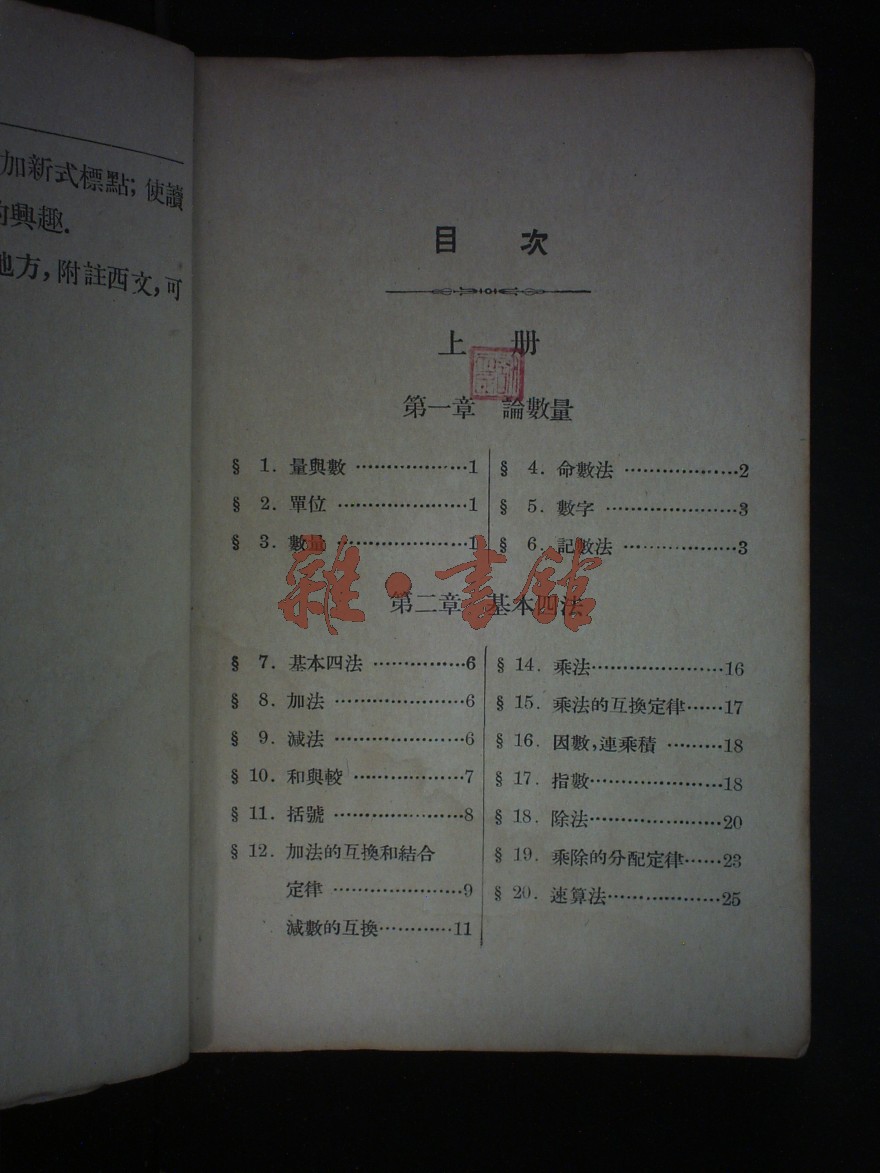 加新式標點; 使讀
的興趣.
地方, 附註西文, 可
目 次
上 册
第一章 論數量
§ 1. 量與數 ………………1
§ 2. 單位 …………………1
§ 3. 數量 …………………1
§ 4. 命數法 ………………2
§ 5. 數字 …………………3
§ 6. 記數法 ………………3
雜·書館
第二章 基本四法
§ 7. 基本四法 ……………6
§ 8. 加法 …………………6
§ 9. 減法 …………………6
§ 10. 和與較 ………………7
§ 11. 括號 …………………8
§ 12. 加法的互換和結合
定律 …………………9
減數的互換…………11
§ 14. 乘法…………………16
§ 15. 乘法的互換定律……17
§ 16. 因數,連乘積 ………18
§ 17. 指數…………………18
§ 18. 除法…………………20
§ 19. 乘除的分配定律……23
§ 20. 速算法………………25